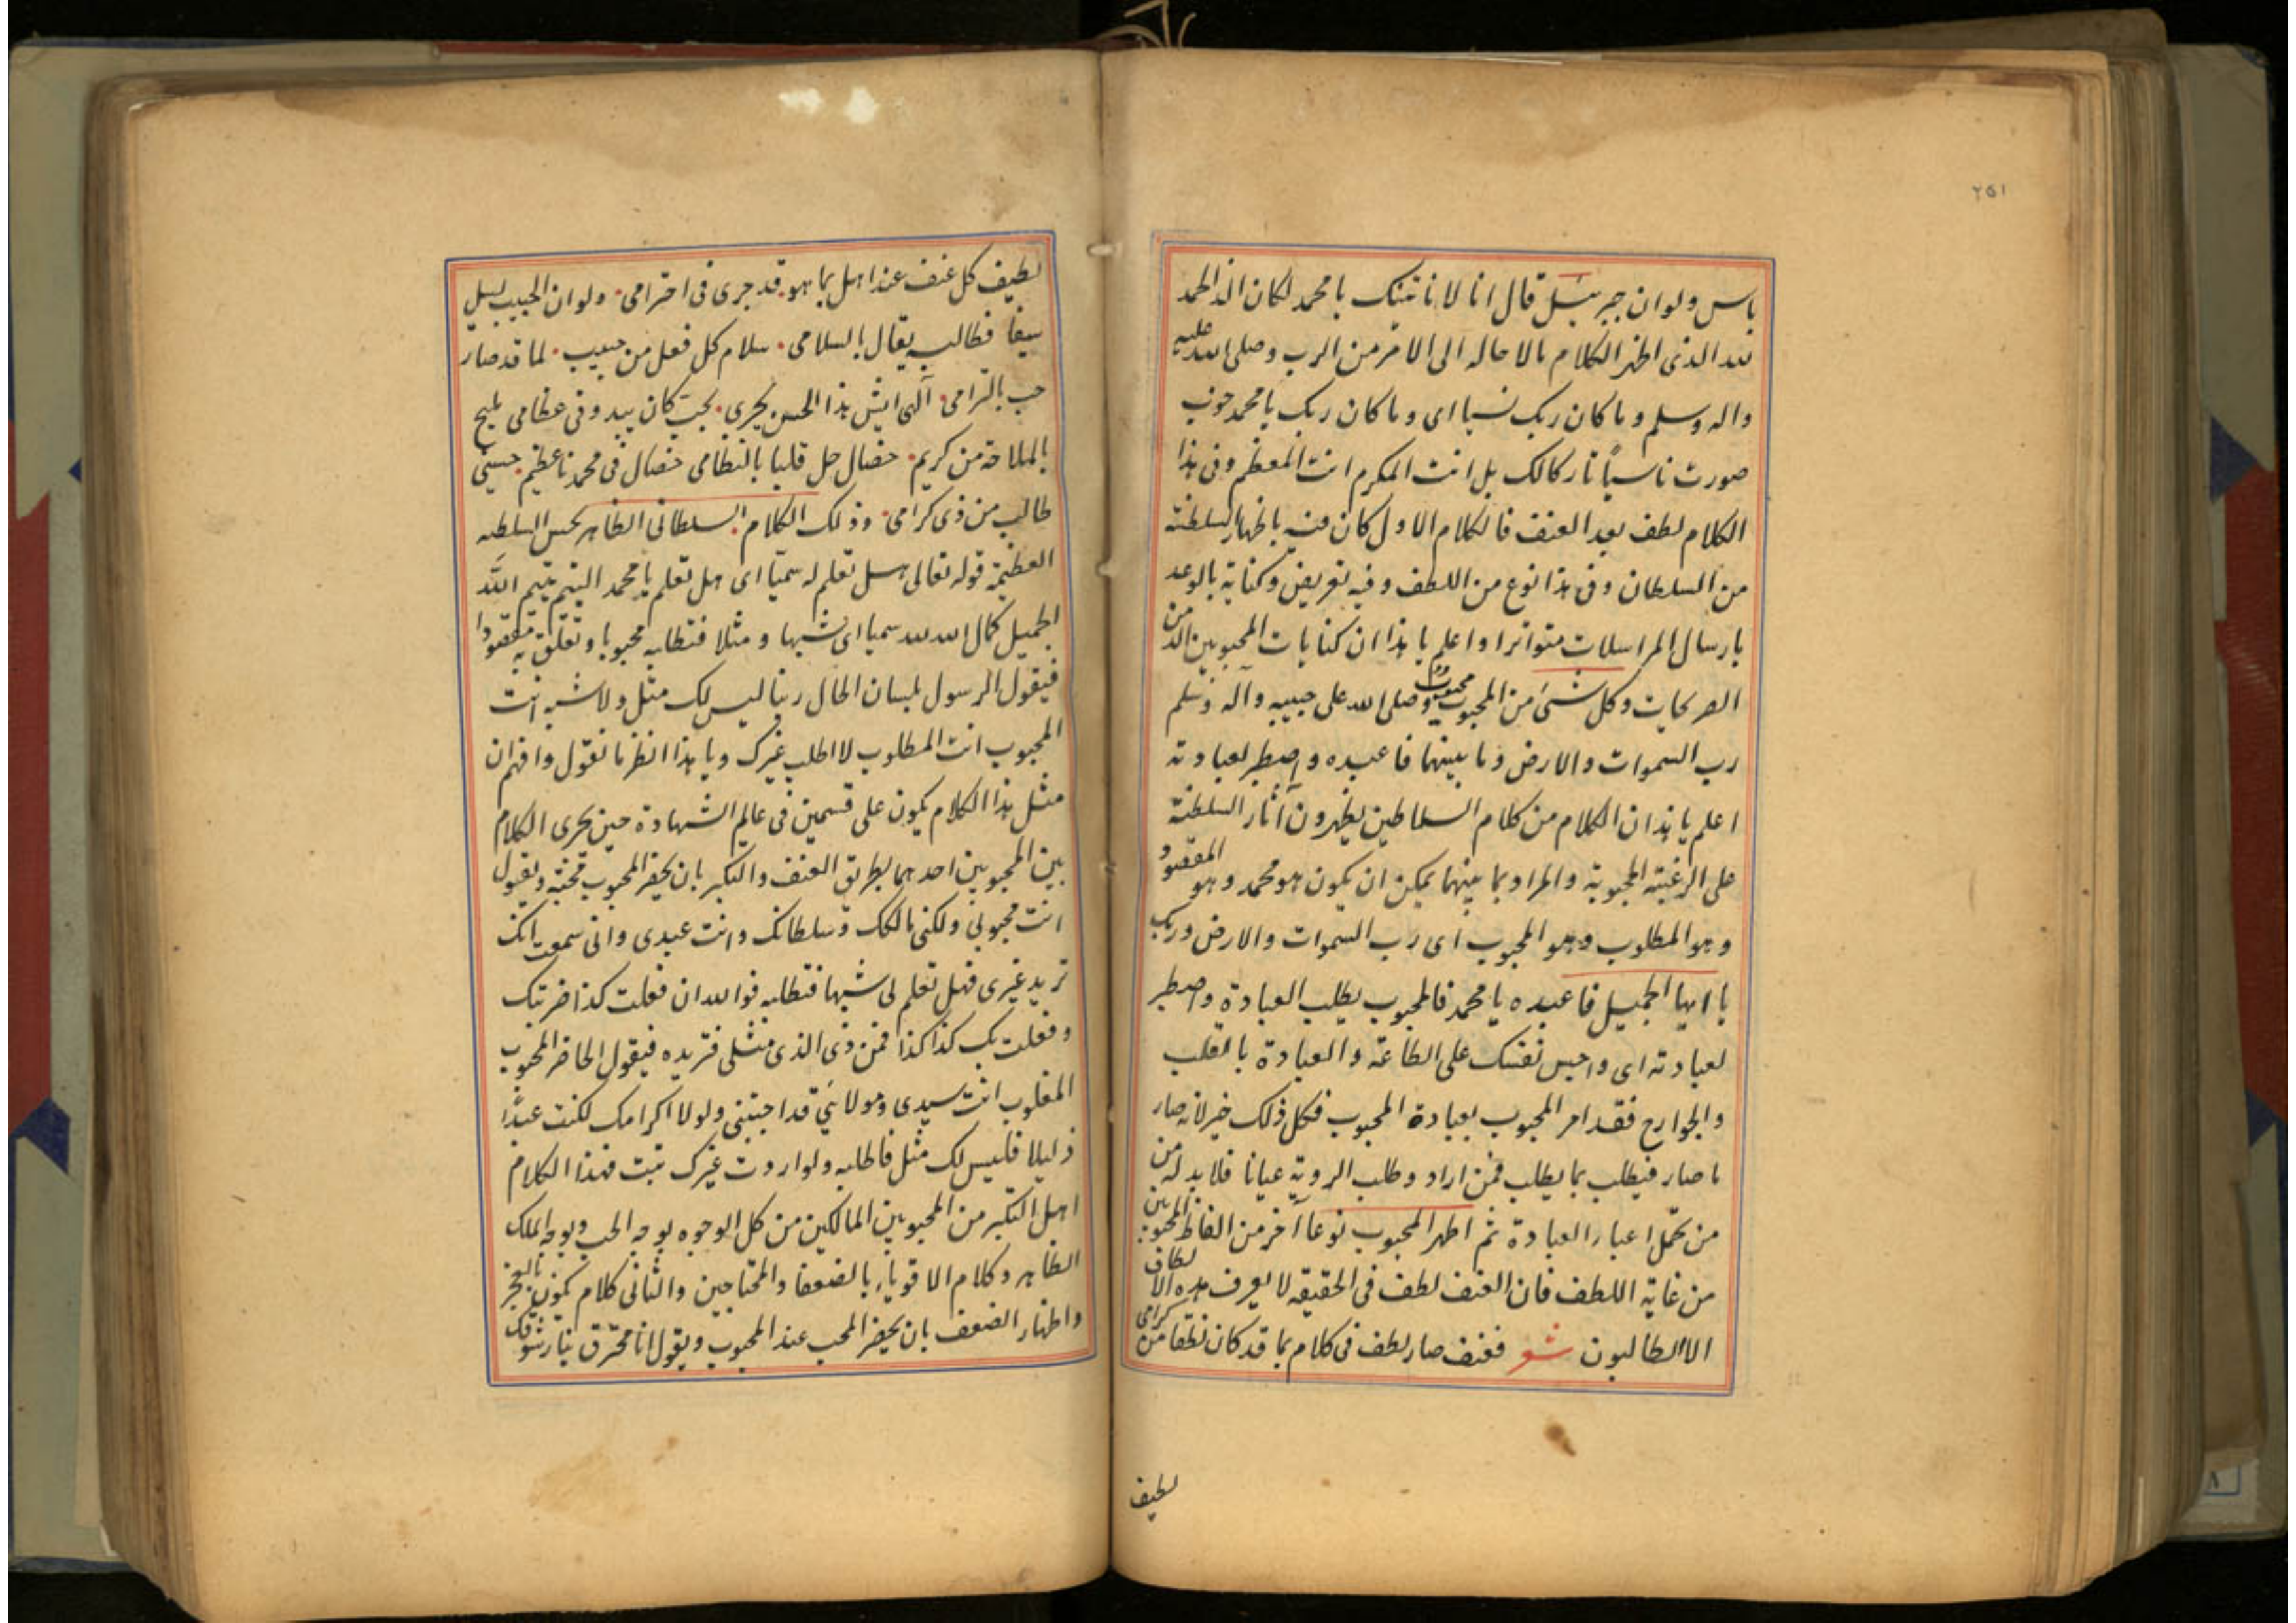 ٢٥١
باس ولوان جبرئیل قال انا لا ناتیک یا محمد لکان الذ الحمد
لله الذی اظهر الکلام بالاحاله الی الامر من الرب وصلی الله علیه
واله وسلم وما کان ربک نسیا ای وما کان ربک یا محمد حوب
صورت ناسیاً تارکا لک بل انت المکرم انت المعظم وفی هذا
الکلام لطف بعد العنف فالکلام الاول کان فیه باظهار السلطنة
من السلطان وفی هذا نوع من اللطف وفیه تعریض وکنایة بالوعد
بارسال المراسلات متواترا واعلم یا هذا ان کنایات المحبوبین الذ من
الصریحات وکل شئ من المحبوب محبوب وصلی الله علی حبیبه وآله وسلم
رب السموات والارض وما بینهما فاعبده واصطبر لعبادته
اعلم یا هذا ان الکلام من کلام السلاطین یظهرون آثار السلطنة
علی الرغبة المحبوبة والمراد بما بینهما یمکن ان یکون هو محمد وهو المقصود
وهو المطلوب وهو المحبوب ای رب السموات والارض وربک
یا ایها الجمیل فاعبده یا محمد فالمحبوب یطلب العبادة واصطبر
لعبادته ای واحبس نفسک علی الطاعة والعبادة بالقلب
والجوارح فقد امر المحبوب بعبادة المحبوب فکل ذلک خیر لانه صار
ما صار فیطلب بما یطلب فمن اراد وطلب الرویة عیانا فلا بد له من
من تحمل اعباء العبادة ثم اظهر المحبوب نوعا آخر من الفاظ المحبوبین
من غایة اللطف فان العنف لطف فی الحقیقه لا یعرف هذه الالطاف
الا الطالبون شعر فعنف صار لطف فی کلام بما قد کان نطقا من کرامی
لطیف
لطیف کل عنف عند اهل بما هو قد جری فی احترامی ولو ان الحبیب یسل
سیفا فطالبه یقال بالسلامی سلام کل فعل من حبیب لما قد صار
حب بالترامی آلهی ایش هذا الحسن یجری بحیث کان یبدو فی عظامی ملیح
بالملاحة من کریم خصال حل قلبا بالنظامی خصال فی محمد نا عظیم حسینی
طالب من ذی کرامی وذلک الکلام السلطانی الظاهر بحسن السلطنه
العظیمة قوله تعالی هل تعلم له سمیّا ای هل تعلم یا محمد الیتیم یتیم الله
الجمیل کمال الله لله سمیا ای شبها ومثلا فتطلبه محبوبا وتعلق به مقصودا
فیقول الرسول بلسان الحال ربنا لیس لک مثل ولا شبه انت
المحبوب انت المطلوب لا اطلب غیرک ویا هذا انظر ما نقول وافهم ان
مثل هذا الکلام یکون علی قسمین فی عالم الشهادة حین یجری الکلام
بین المحبوبین احدهما بطریق العنف والتکبر بان یحضر المحبوب محبه ویقول
انت محبوبی ولکنی مالکک وسلطانک وانت عبدی وانی سمعت انک
ترید غیری فهل تعلم لی شبها فتطلبه فوالله ان فعلت کذا ضربتک
وفعلت بک کذا کذا فمن ذی الذی مثلی فتریده فیقول الحاضر المحبوب
المغلوب انت سیدی ومولائی قد احببتنی ولولا اکرامک لکنت عبدًا
ذلیلا فلیس لک مثل فاطلبه ولو اردت غیرک تبت فهذا الکلام
اهل التکبر من المحبوبین المالکین من کل الوجوه بوجه الحب وبوجه الملک
الظاهر وکلام الاقویاء بالضعفا والمحتاجین والثانی کلام یکون بالعجز
واظهار الضعف بان یحضر المحب عند المحبوب ویقول انا محترق بنار شوقک